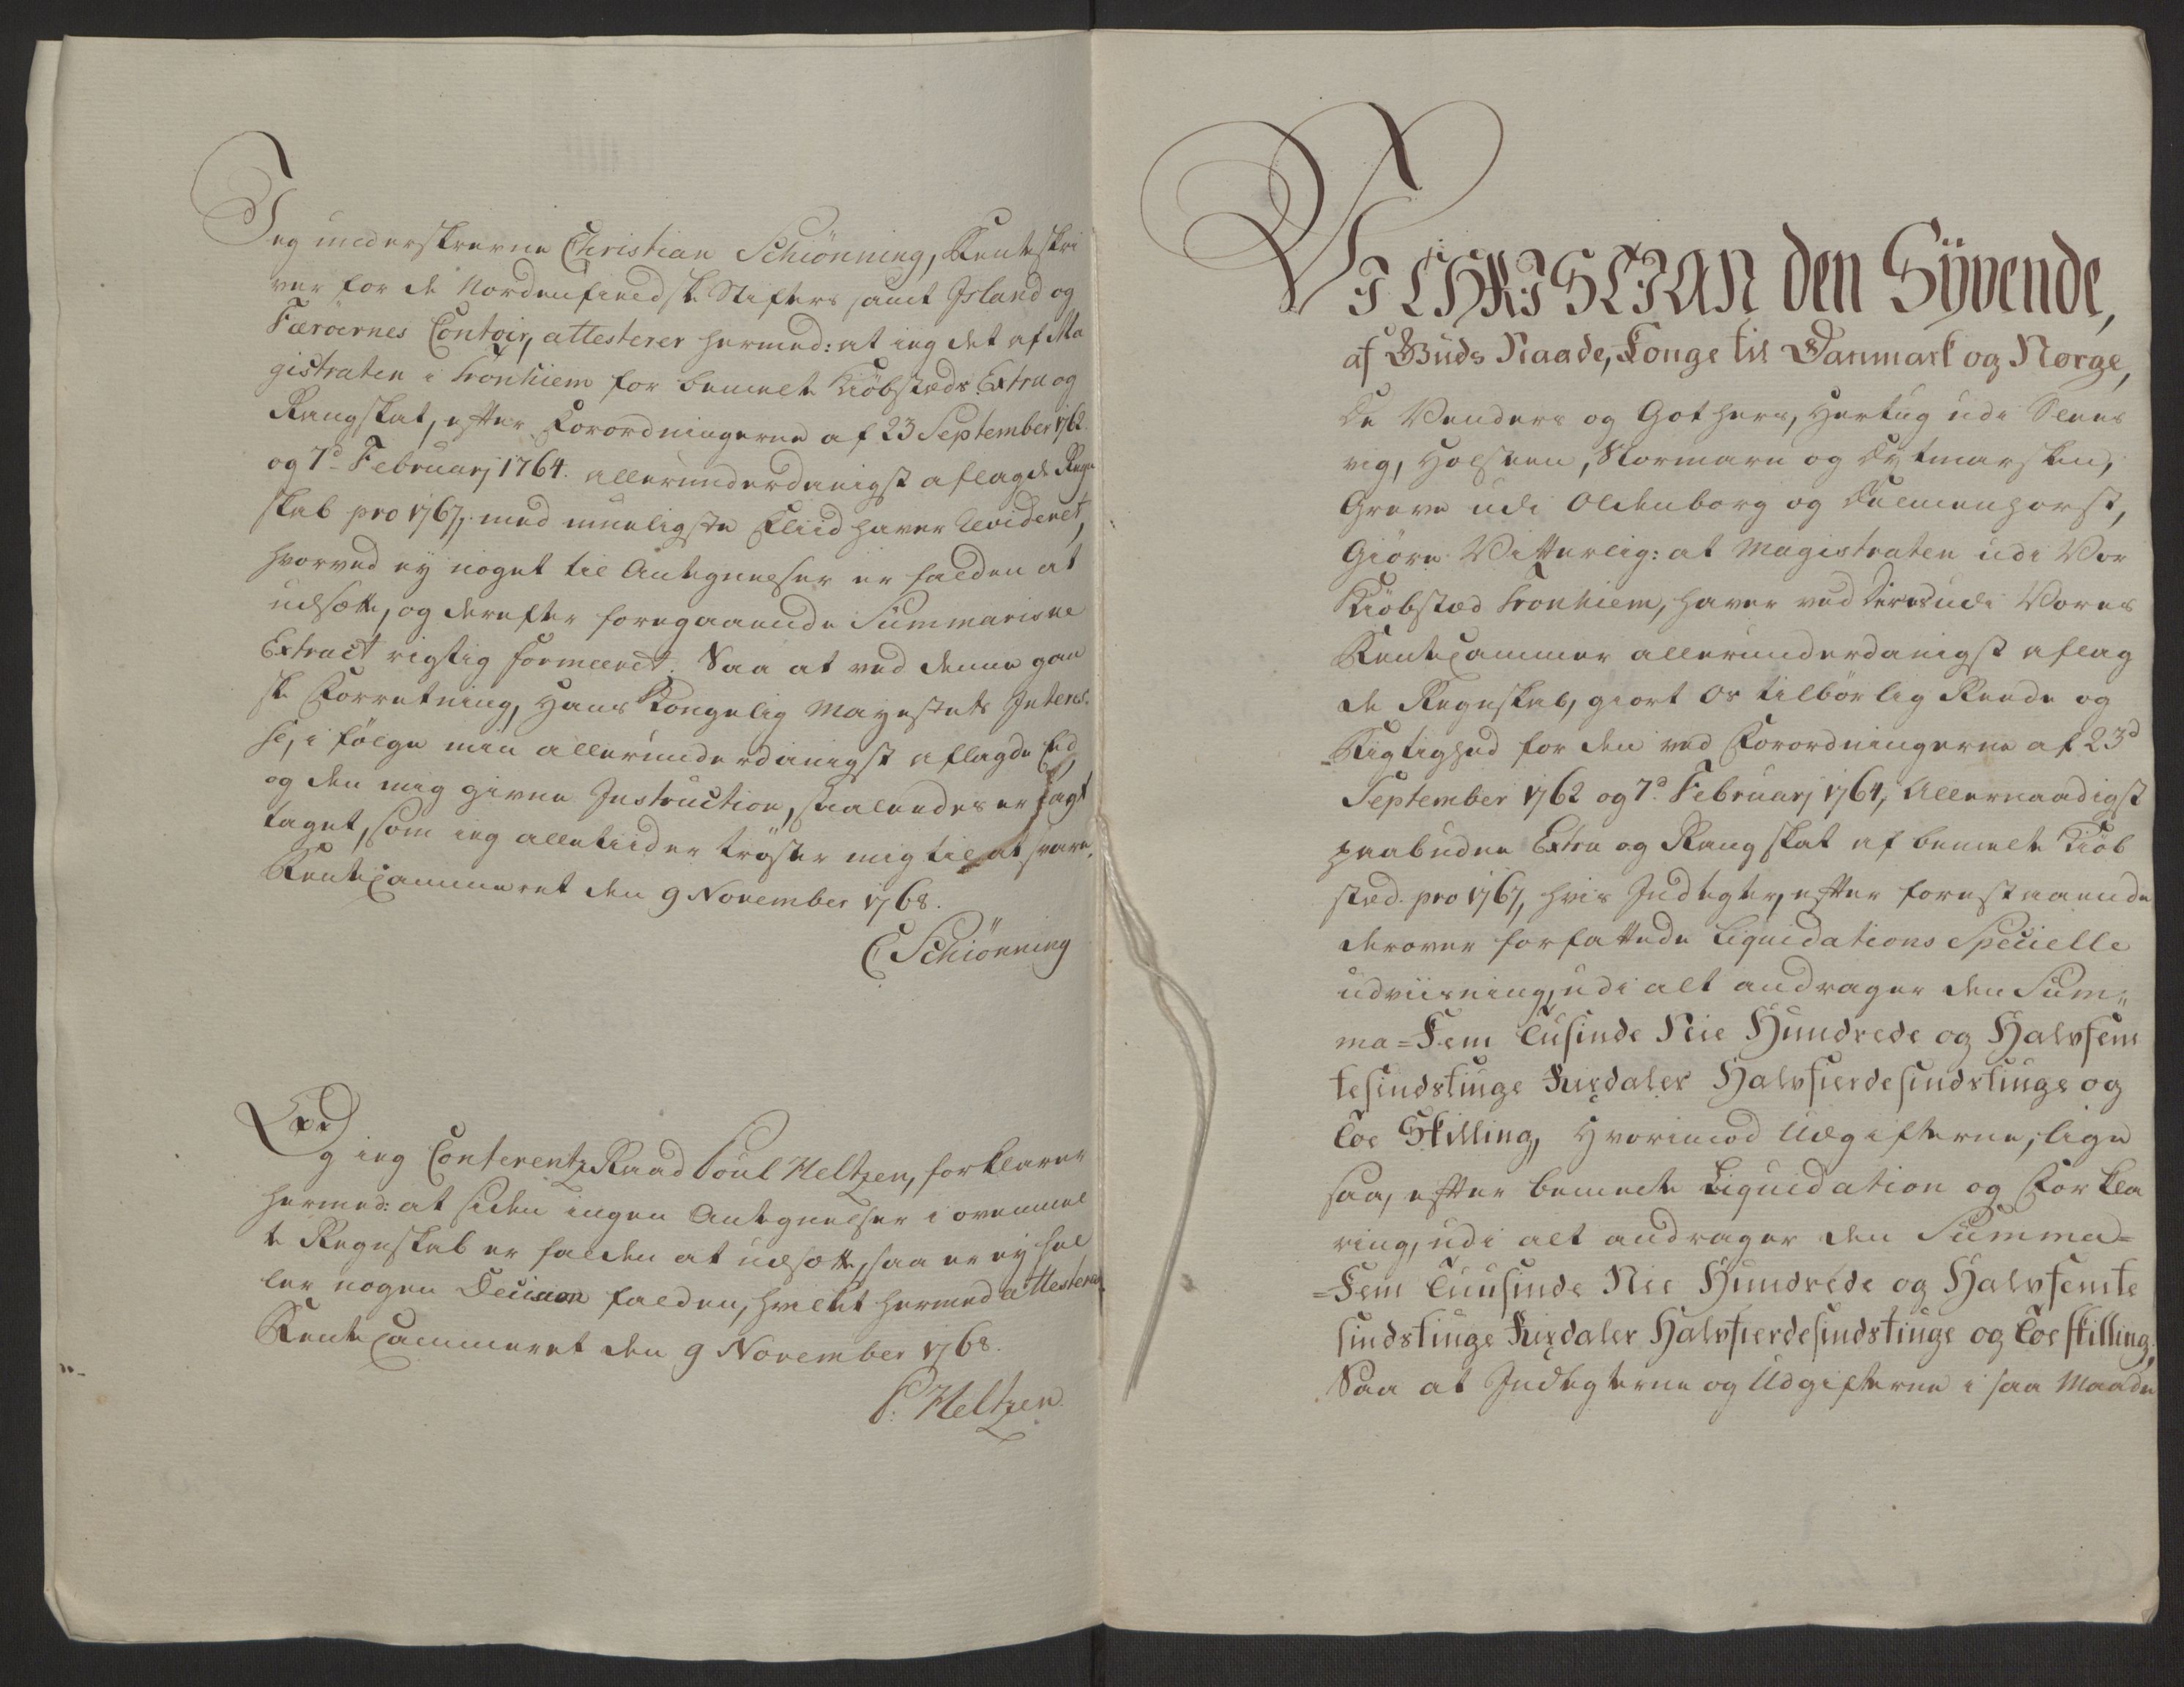 Jeg underskrevne Christian Schiönning, Renteskri
ver for de Nordenfieldske Stifters samt Island og
Færöernes Contoir, attesterer hermed: at ieg det af Ma
gistraten i Tronhiem for bemelte Kiöbsteds Extra og
Rangskat, efter Forordningerne af 23 September 1762.
og 7d Februarj 1764. allerunderdanigst aflagde Regn
skab pro 1767, med mueligste Fliid haver Revideret,
hvorved ey noget til Antegnelser er falden at
udsætte, og derefter foregaaende Summariske
Extract rigtig formeeret. Saa at ved denne gan
ske Forretning, Hans Kongelig Mayestets Interes
se, i fölge min allerunderdanigst aflagde Eed,
og den mig givne Instruction, saaledes er iagt
taget, som ieg alletiider tröster mig til at svare.
RenteCammeret den 9 November 1768.
C Schiönning
Og ieg ConferentzRaad Poul Heltzen, forklarer
hermed: at siden ingen Antegnelser i ovenmel
te Regnskab er falden at udsætte, saa er ey hel
ler nogen Decision falden, hvilket hermed attesteres.
RenteCammeret den 9 November 1768.
P. Heltzen
VI CHRISTIAN den Syvende,
af Guds Naade, Konge til Danmark og Norge,
De Venders og Gothers, Hertug udi Slees
vig, Holsteen, Stormarn og Dytmarsken,
Greve udi Oldenborg og Delmenhorst,
Giöre Vitterlig: at Magistraten udi Vor
Kiöbsted Tronhiem, haver ved Deres udi Vores
RenteCammer allerunderdanigst aflag
de Regnskab, giort Os tilbörlig Reede og
Rigtighed for den ved Forordningerne af 23d
September 1762 og 7d Februarj 1764, Allernaadigst
paabudne Extra og Rang skat af bemelte Kiöb
sted pro 1767, hvis Indtegter, efter forestaaende
derover forfattede Liquidations Specielle
udviisning, udi alt andrager den Sum„
ma = Fem Tusinde Nie Hundrede og Halvfem
tesindstiuge Rixdaler Halvfierdesindstiuge og
Toe Skilling, Hvorimod Udgifterne, lige
saa, efter bemelte Liquidation og Forkla
ring, udi alt andrager den Summa =
= Fem Tuusinde Nie Hundrede og Halvfemte
sindstiuge Rixdaler Halvfierdesindstiuge og Toe skilling,
Saa at Indtegterne og Udgifterne i saa Maade